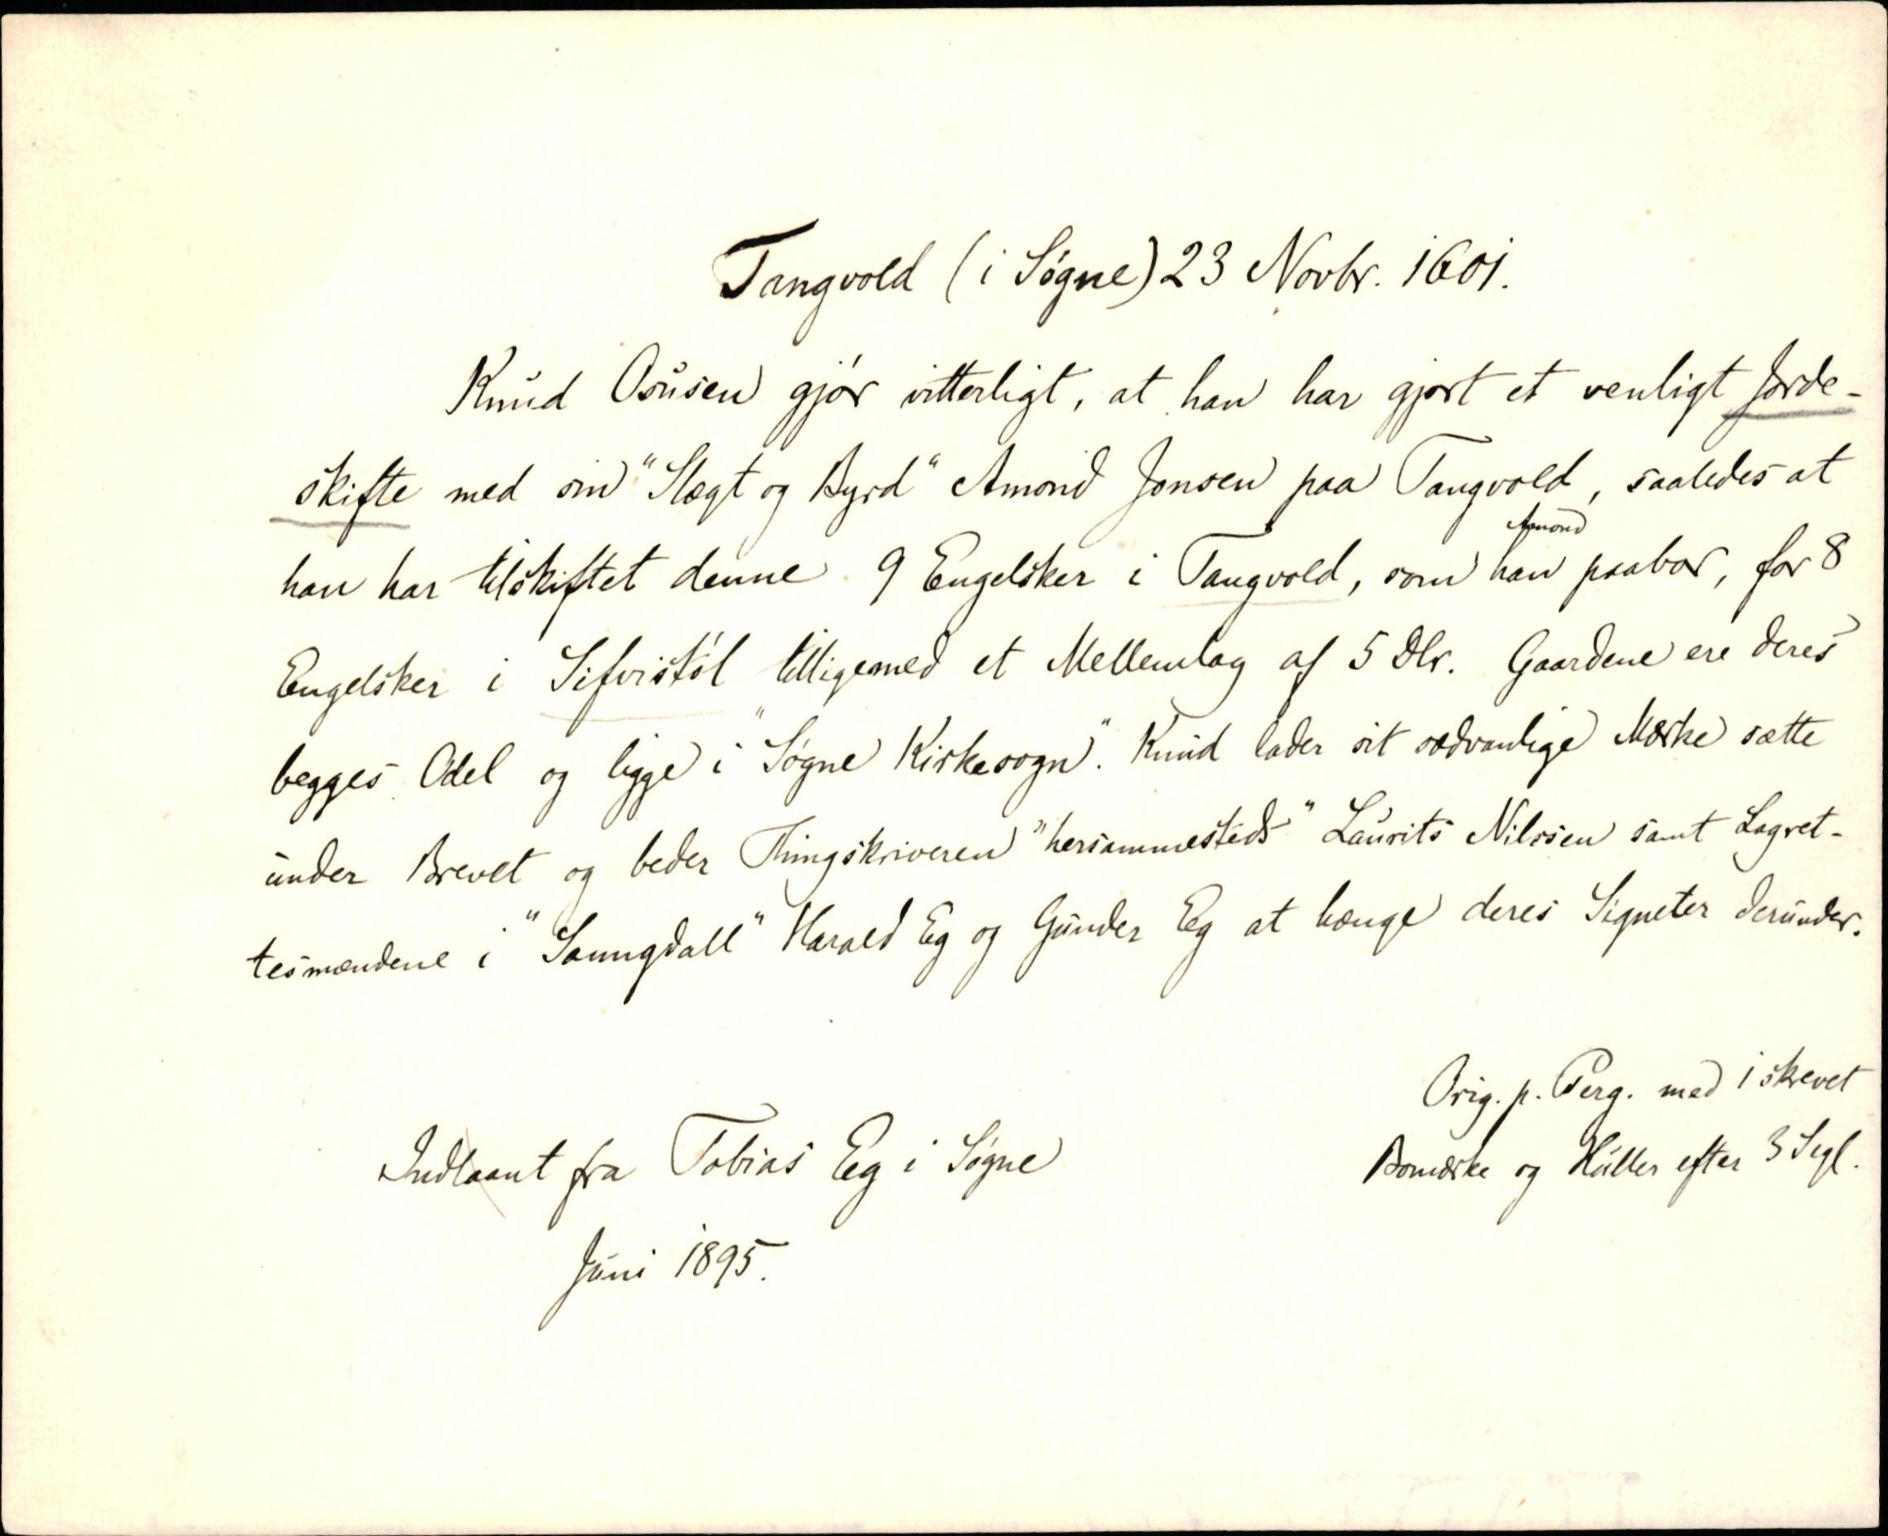 Tangvold (i Søgne) 23 Novbr. 1601.
Knud Osusen gjør vitterligt, at han har gjort et venligt Jorde-
skifte med sin "Slægt og Byrd" Amond Jonsen paa Tangvold, saaledes at
han har tilskiftet denne 9 Engelsker i Tangvold, som han paabor, for 8
Amond
Engelsker i Sifvistøl tilligemed et Mellemlag af 5 Dlr. Gaardene ere deres
begges Odel og ligge i "Søgne Kirkesogn". Knud lader sit sædvanlige Mærke sætte
under Brevet og beder Thingskriveren "hersammesteds" Laurits Nilssen samt Lagret-
tesmændene i "Sanngdall" Harald Eg og Gunder Eg at hænge deres Signeter derunder.
Orig. p. Perg. med 1 skrevet
Bomærke og Huller efter 3 Segl.
Indlaant fra Tobias Eg i Søgne
Juni 1895.